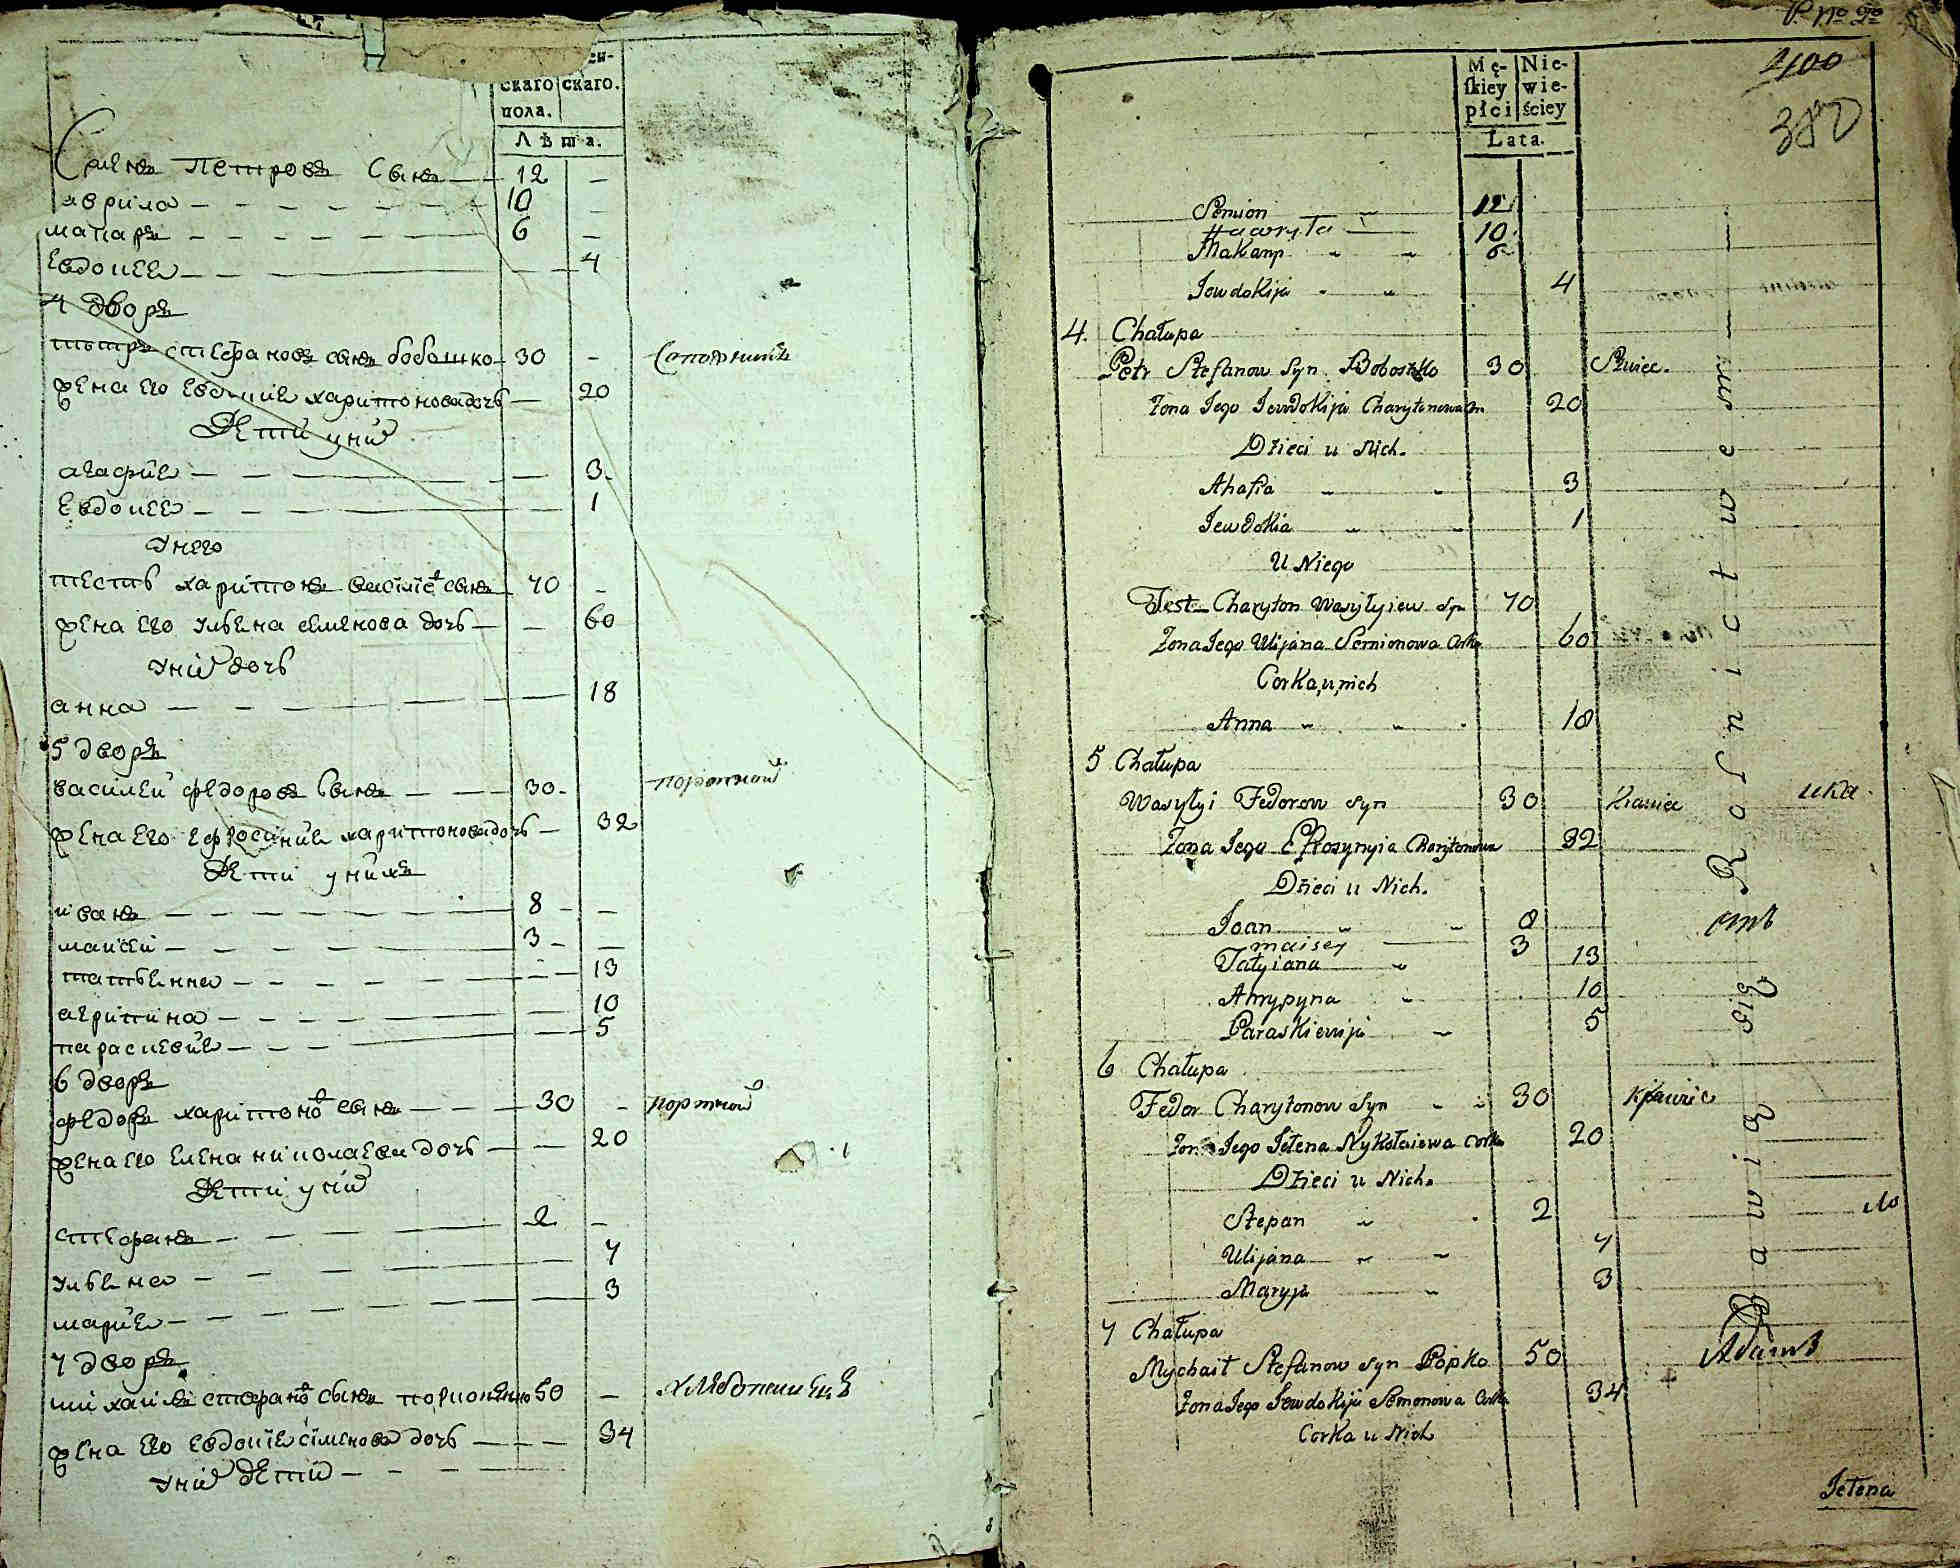 скаго скаго.
пола.
Лѣта.
Семенъ Петровъ сынъ 12 —
гаврила 10 —
макаръ 6 —
Евдокея 4
4 дворъ
петръ стефановъ сынъ бобошко 30 — Сапожникъ
жена его Евдокия харитонова дочь 20
Дети у них
агафия 3
Евдокея 1
Унего
тесть харитонъ василiевъ сынъ 70 —
жена его ульяна семенова дочь 60
Уних дочь
анна 18
5 дворъ
василей федоровъ сынъ 30 портной
жена его Ефросиния харитонова дочь 32
Дети у нихъ
иванъ 8 —
маисей 3 —
татьянна 13
агрипина 10
параскевия 5
6 дворъ
федоръ харитоновъ сынъ 30 — портной
жена его Елена николаева дочь 20
Дети у них
стефанъ 2 —
ульяна 7
мария 3
7 дворъ
михаила стефановъ сынъ 50 —
жена его Евдокия сименова дочь 34
Уних дети
P. no 20
400
380
Męskiey płci Niewieściey
Lata.
Semion 12
Hawryła 10
Makarp 6
Jewdokija 4
4. Chałupa
Petr Stefanow Syn Boboszko 30 Szwiec.
Żona Jego Jewdokija Charytonowa 20
Dzieci u Nich.
Ahafia 3
Jewdokia 1
U Niego
Test Charyton Wasylyiew Syn 70
Żona Jego Ulijana Semionowa Corka 60
Corka u nich
Anna 18
5 Chałupa
Wasylyi Fedorow syn 30 Krawiec
Żona Jego Efrosynyia Charytonowa 32
Dzieci u Nich.
Joan 8
maisey 3
Tatyiana 13
Ahrypyna 10
Paraskiewija 5
6 Chałupa
Fedor Charytonow Syn 30 Krawiec
Żona Jego Jełena Nykołaiewa corka 20
Dzieci u Nich.
Stepan 2
Ulijana 7
Maryja 3
7 Chałupa
Mychaił Stefanow syn Popko 50
Żona Jego Jewdokija Semonowa Corka 34
Corka u Nich
Jełena
Bawią się Rolnictwem